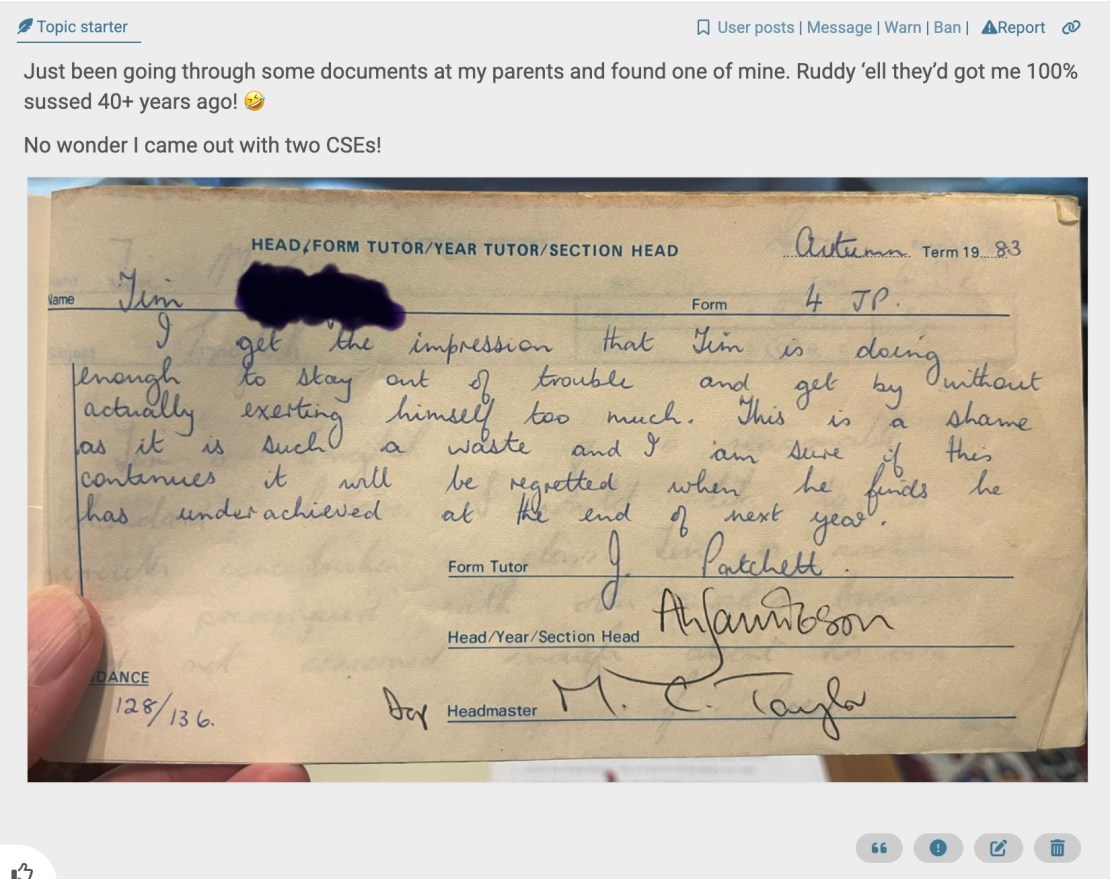 Topic starter
User posts | Message | Warn | Ban | Report
Just been going through some documents at my parents and found one of mine. Ruddy ‘ell they’d got me 100%
sussed 40+ years ago! 🤣
No wonder I came out with two CSEs!
HEAD/FORM TUTOR/YEAR TUTOR/SECTION HEAD
Autumn Term 19 83
Name Tim
Form 4 JP.
I get the impression that Tim is doing
enough to stay out of trouble and get by without
actually exerting himself too much. This is a shame
as it is such a waste and I am sure if this
continues it will be regretted when he finds he
has underachieved at the end of next year.
Form Tutor J. Patchett.
Head/Year/Section Head
DANCE
128/136.
Headmaster M. C. Taylor